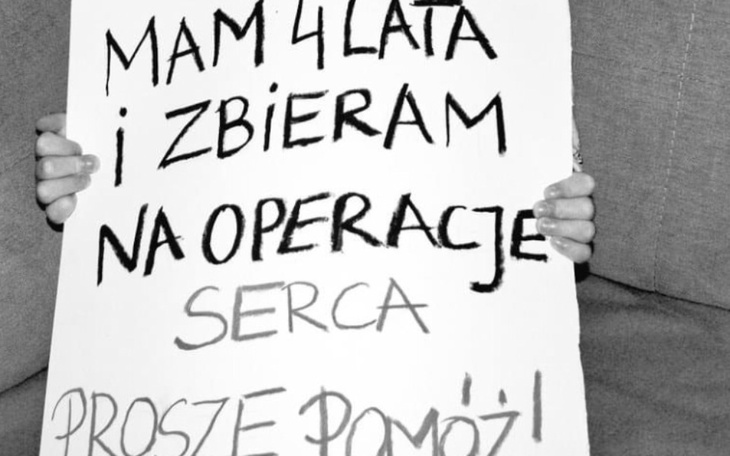 MAM 4 LATA
i ZBiERAM
NA OPERACJE
SERCA
PROSZE POMÓŻ!